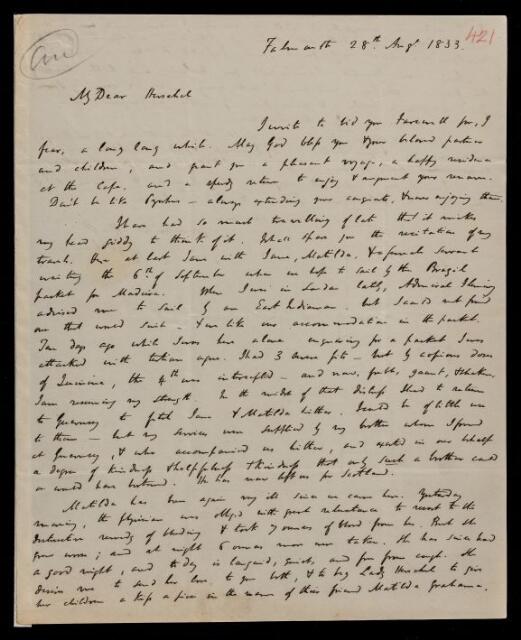 421
Falmouth 28th Augt 1833.
My Dear Herschel
I write to bid you Farewell for, I
fear, a long long while. May God bless you & your beloved partner
and children, and grant you a pleasant voyage, a happy residence
at the Cape, and a speedy return to enjoy & augment your renown.
Don't be like Cyrus – always extending your conquests, & never enjoying them.
I have had so much travelling of late that it makes
my head giddy to think of it. I shall spare you the recitation of my
travels. Here at last I am with Jane, Matilda, & a female servant
waiting the 6th of September when we hope to sail by the Brazil
packet for Madeira. When I was in London lately, Admiral
advised me to sail by an East Indiaman, but I could not find
one that would suit – & we like our accommodation in the packet.
Ten days ago while I was here alone engaging for a packet I was
attacked with tertian ague. I had 3 severe fits – but by copious doses
of Quinine, the 4th was intercepted – and now, feeble, gaunt,
I am resuming my strength. In the midst of that distress I had to return
to Guernsey to fetch Jane & Matilda hither. I could be of little use
to them – but my services were supplied by my brother whom I found
at Guernsey, & who accompanied us hither, and exerted in our behalf
a degree of kindness & helpfulness that only such a brother could
or would have bestowed. He has now left us for Scotland.
Matilda has been again very ill since we came here. Yesterday
morning, the physician was obliged with great reluctance to resort to the
remedy of bleeding & took 7 ounces of blood from her. But she
grew worse; and at night 6 ounces more were taken. She has since had
a good night, and today is languid, quiet, and free from cough. She
desires me to send her love to you both, & to beg Lady Herschel to give
her children a kiss a piece in the name of their friend Matilda Grahame.